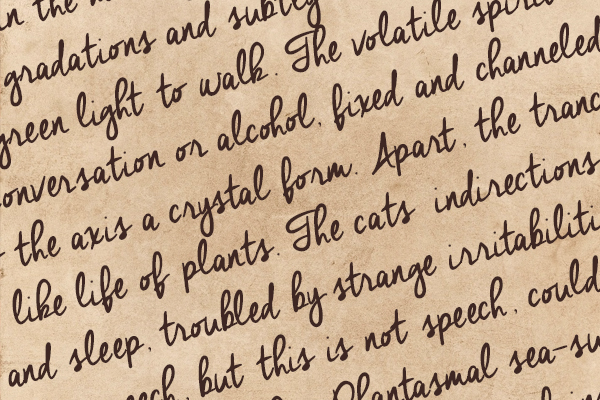 in the
gradations and subtly
green light to walk. The volatile
conversation or alcohol, fixed and channeled
the axis a crystal form. Apart, the
like life of plants. The cats indirections
and sleep, troubled by strange
but this is not speech, could
Phantasmal